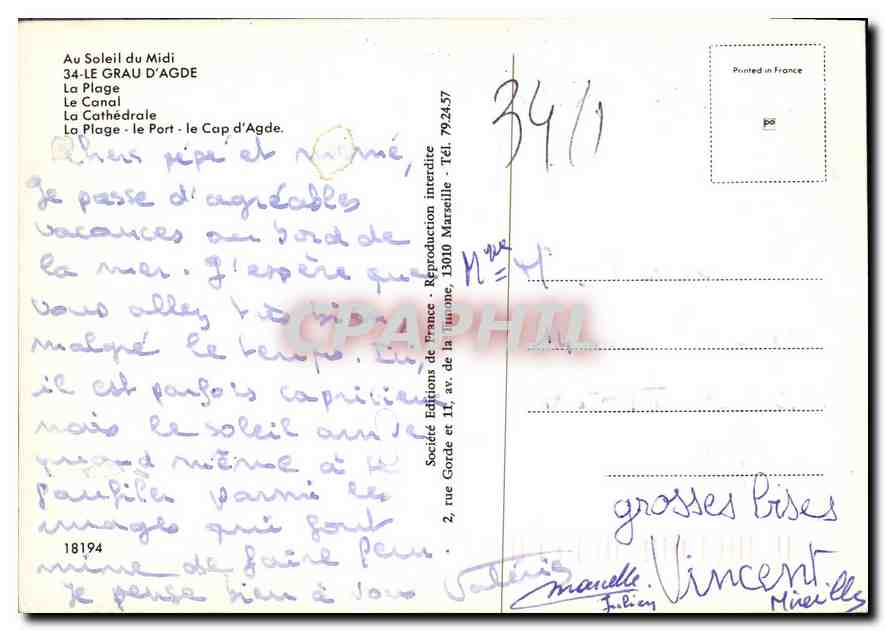 Au Soleil du Midi
34-LE GRAU D'AGDE
La Plage
Le Canal
La Cathédrale
La Plage - le Port - le Cap d'Agde.
Chers pépé et mémé,
Je passe d'agréables
vacances au bord de
la mer. J'espère que
vous allez très bien,
malgré le temps. Ici,
il est parfois capricieux
mais le soleil arrive
quand même à se
faufiler parmi les
nuages qui font
mine de faire peur.
Je pense bien à vous
Valérie
18194
Société Editions de France - Reproduction interdite
2, rue Gorde et 11, av. de la Timone, 13010 Marseille - Tél. 79.24.57
CPAPHIL
34/1
Printed in France
Mme M
grosses bises
Vincent
Marcelle.
Julien
Mireille